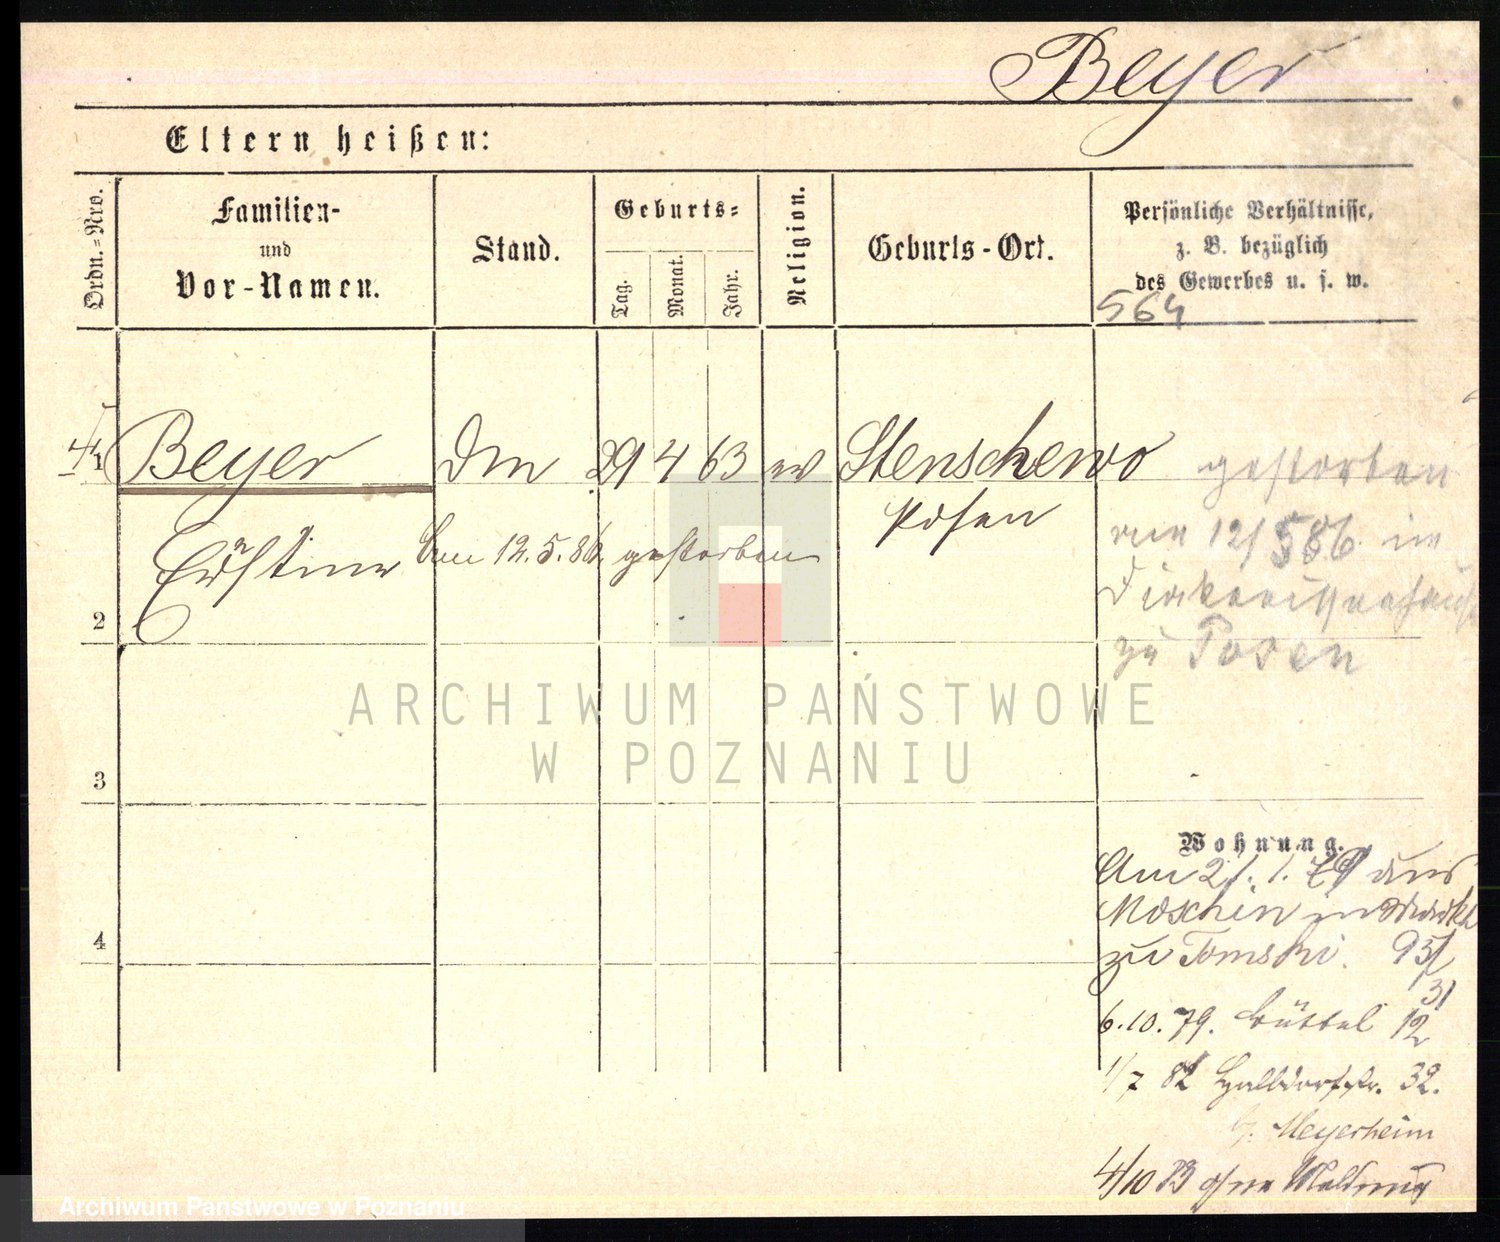 Beyer
Eltern heißen:
Ordn.=Nro.
Familien-
und
Vor-Namen.
Stand.
Geburts=
Tag.
Monat.
Jahr.
Religion.
Geburts-Ort.
Persönliche Verhältnisse,
z. B. bezüglich
des Gewerbes u. s. w.
564
1
Beyer
29 4 63 ev Stenschewo
gestorben
Posen
am 12/5 86. in
Am 12.5.86. gestorben
Diakonissenhaus
2
zu Posen
ARCHIWUM PAŃSTWOWE
W POZNANIU
3
Wohnung.
Am 21.1.79 aus
Moschin
4
zu Tomski. 95/
31
6.10.79. Büttel 12
1/7 82 Halbdorfstr. 32.
b. Meyerheim
4/10 83 ohne Meldung
Archiwum Państwowe w Poznaniu